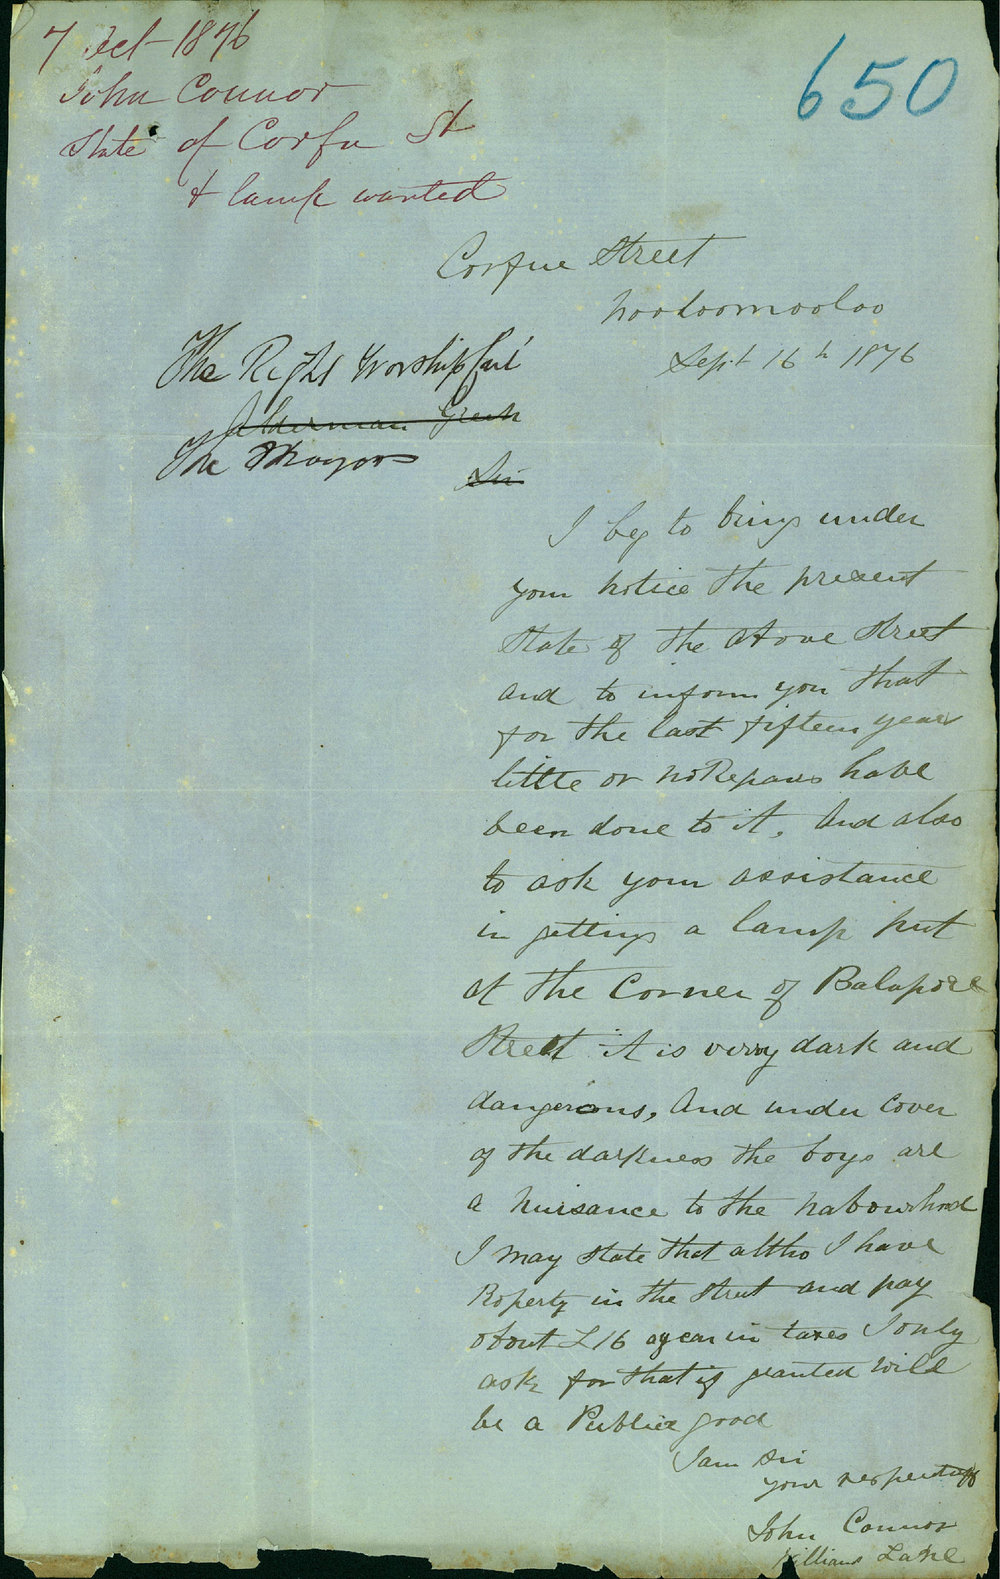 7 Oct 1876
650
John Connor
State of Corfu St
& lamp wanted
Corfue Street
Wooloomooloo
Sept 16th 1876
The Right Worshipful
Alderman Green
The Mayor
Sir
I beg to bring under
your notice the present
State of the above Street
and to inform you that
for the last fifteen year
little or no Repairs have
been done to it. And also
to ask your assistance
in getting a lamp put
at the Corner of Balapore
Street it is verry dark and
dangerous, And under Cover
of the darkness the boys are
a nuisance to the nabourhood
I may state that altho I have
Roperty in the Street and pay
about £16 ayear in taxes I only
ask for that if granted will
be a Publice good
I am Sir
your respectully
John Connor
Williams Lane